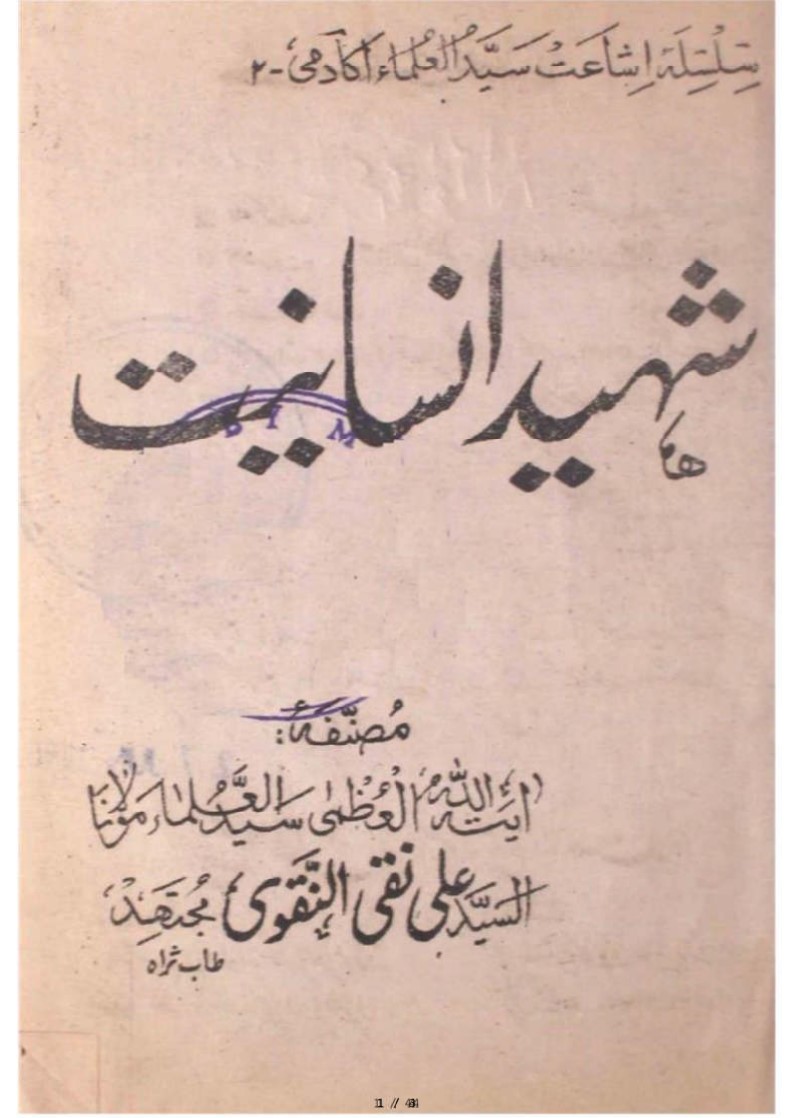 سِلْسِلَۂ اِشَاعَتْ سَیَّدُ العُلماء اکادمی - ۲
شہید انسانیت
B I M
مُصنّفہٗ:
آیۃ اللہ العُظمٰی سَیّدُ العُلماء مَولانا
السیّد علی نقی النّقوی مُجتَہِدْ
طاب ثراہ